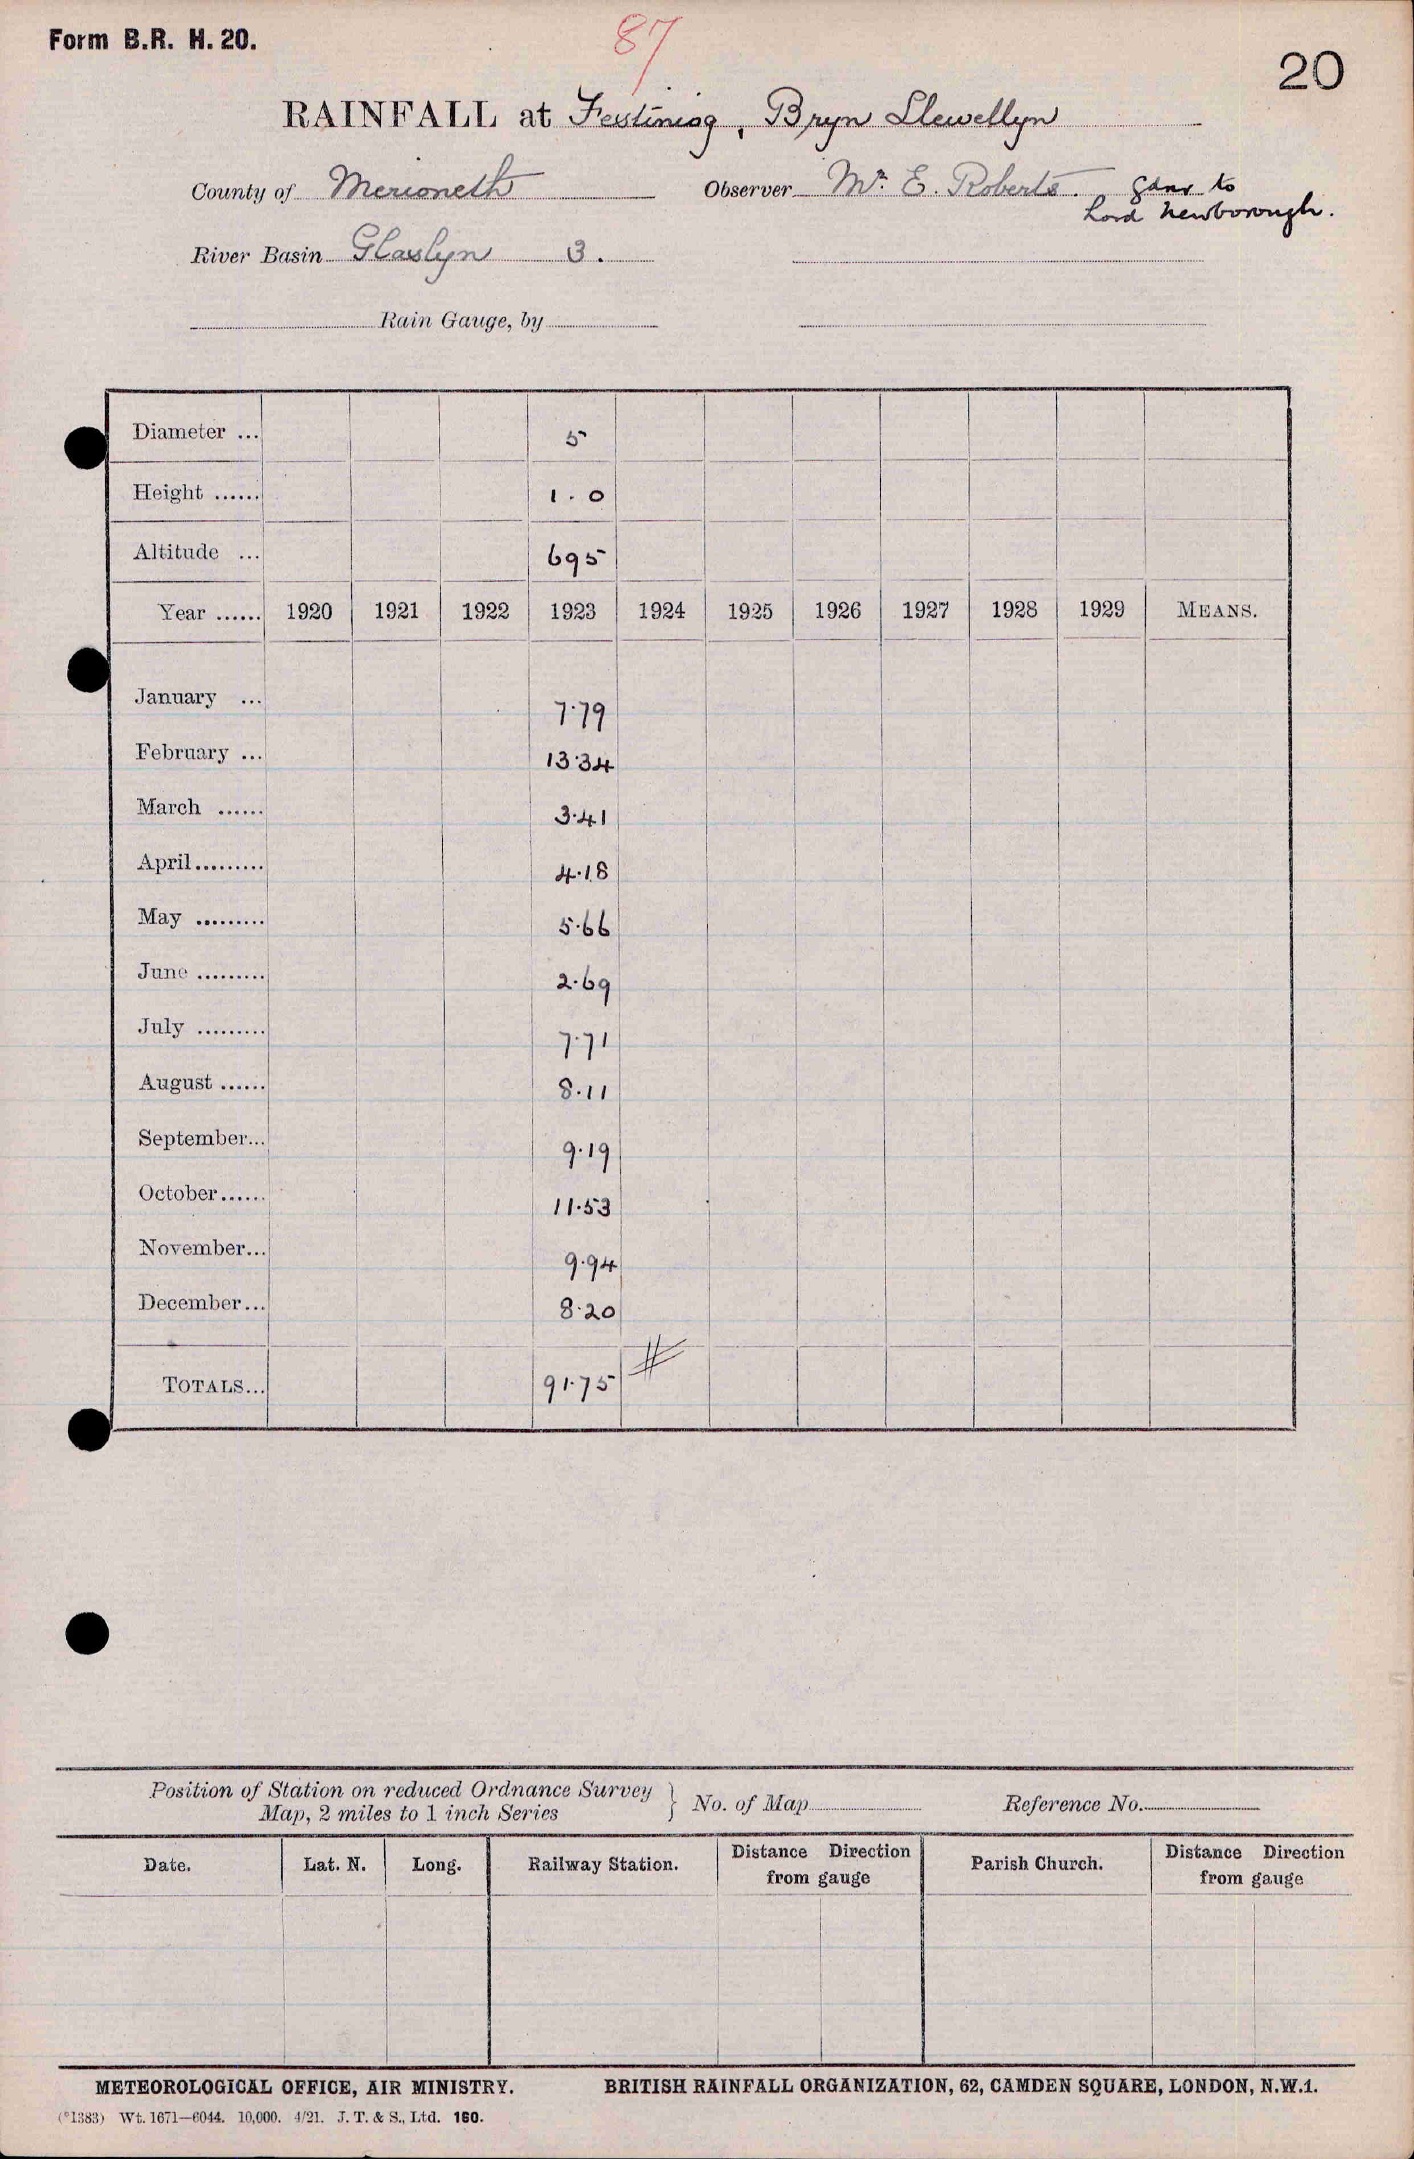 Form B.R. H. 20.
87
20
RAINFALL at Festiniog, Bryn Llewellyn
County of Merioneth Observer Mr. E. Roberts. Gdnr to
Lord Newborough.
River Basin Glaslyn 3.
Rain Gauge, by
Diameter ... 5
Height ...... 1.0
Altitude ... 695
Year ...... 1920 1921 1922 1923 1924 1925 1926 1927 1928 1929 MEANS.
January ... 7.79
February ... 13.34
March ...... 3.41
April......... 4.18
May ......... 5.66
June ......... 2.69
July ......... 7.71
August ...... 8.11
September... 9.19
October...... 11.53
November... 9.94
December... 8.20
TOTALS... 91.75
Position of Station on reduced Ordnance Survey
Map, 2 miles to 1 inch Series } No. of Map Reference No.
Date. Lat. N. Long. Railway Station. Distance Direction from gauge Parish Church. Distance Direction from gauge
METEOROLOGICAL OFFICE, AIR MINISTRY. BRITISH RAINFALL ORGANIZATION, 62, CAMDEN SQUARE, LONDON, N.W.1.
(*1383) Wt. 1671—6044. 10,000. 4/21. J. T. & S., Ltd. 160.